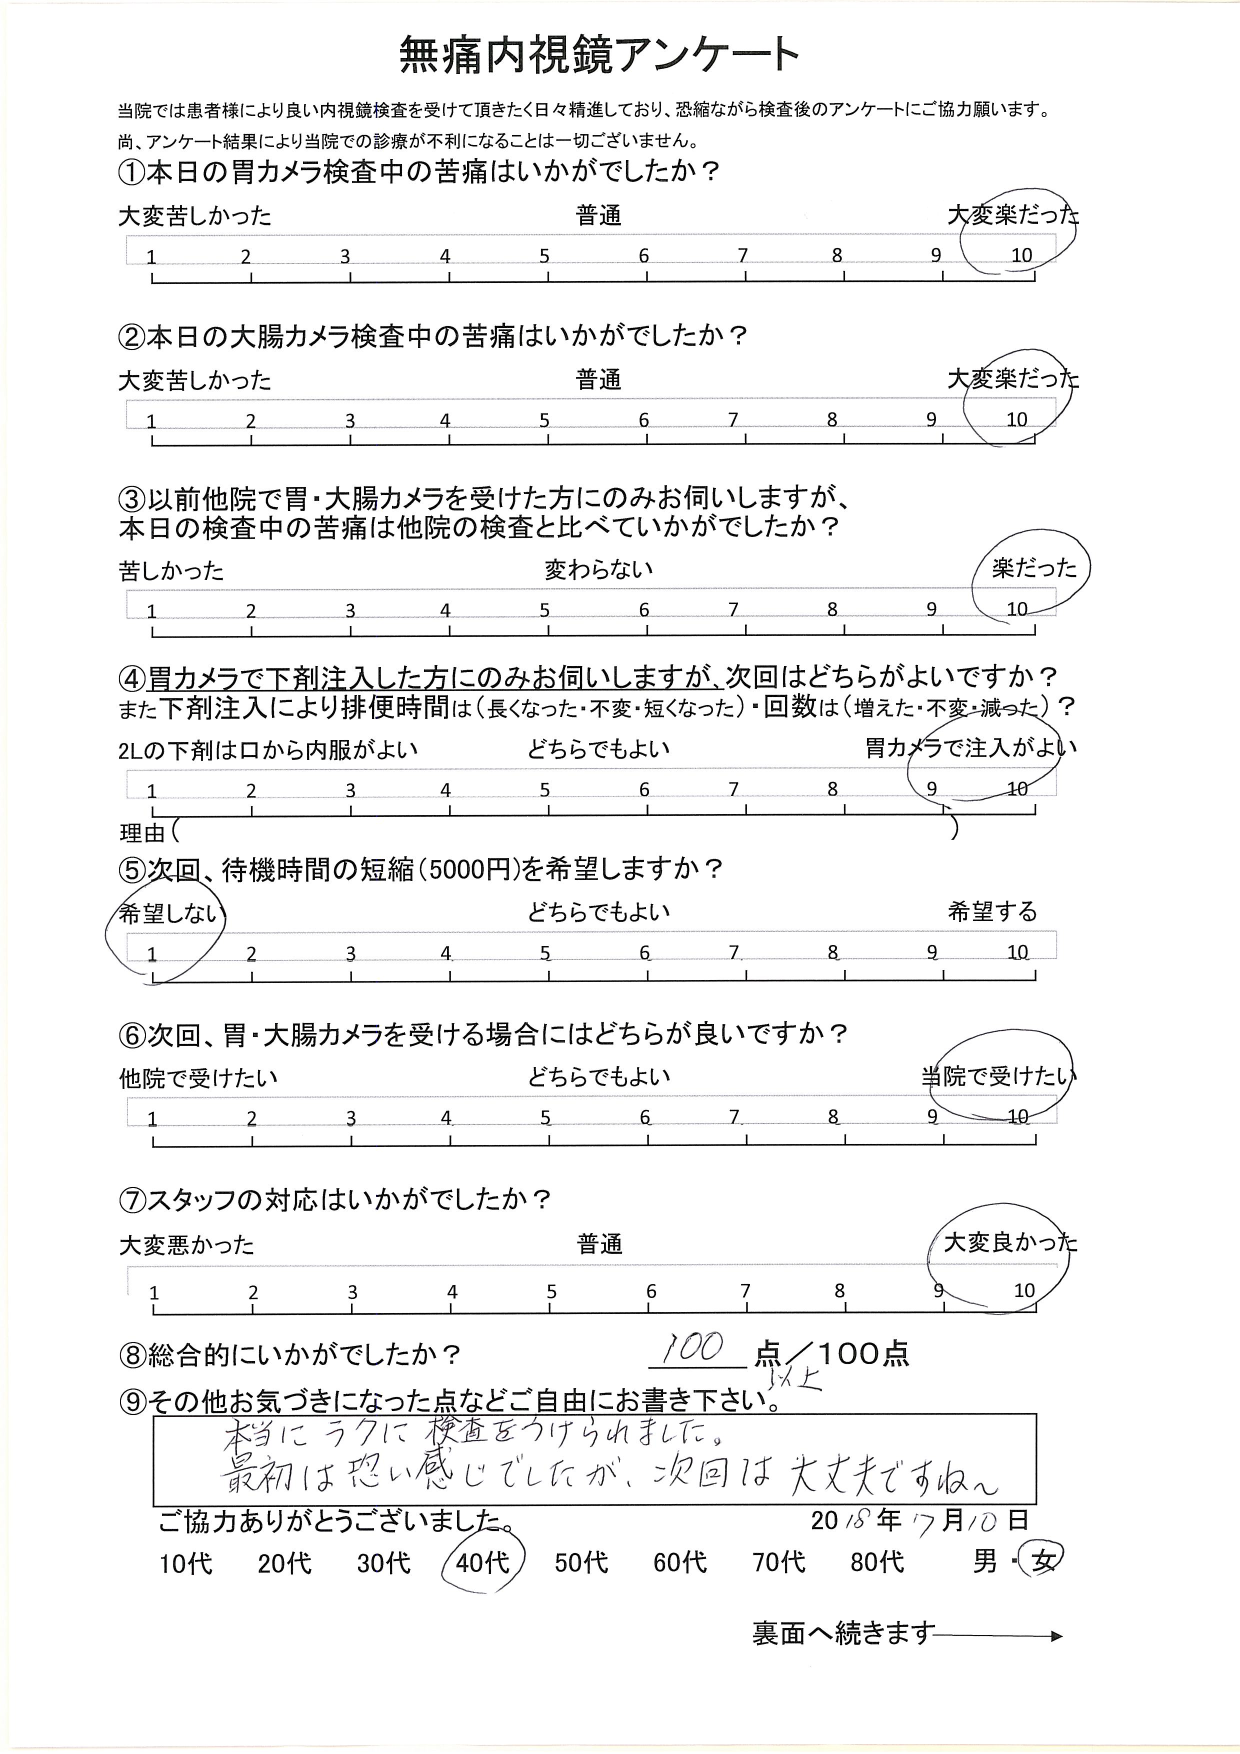 無痛内視鏡アンケート
当院では患者様により良い内視鏡検査を受けて頂きたく日々精進しており、恐縮ながら検査後のアンケートにご協力願います。
尚、アンケート結果により当院での診療が不利になることは一切ございません。
①本日の胃カメラ検査中の苦痛はいかがでしたか？
大変苦しかった 普通 大変楽だった
1 2 3 4 5 6 7 8 9 10
②本日の大腸カメラ検査中の苦痛はいかがでしたか？
大変苦しかった 普通 大変楽だった
1 2 3 4 5 6 7 8 9 10
③以前他院で胃・大腸カメラを受けた方にのみお伺いしますが、
本日の検査中の苦痛は他院の検査と比べていかがでしたか？
苦しかった 変わらない 楽だった
1 2 3 4 5 6 7 8 9 10
④胃カメラで下剤注入した方にのみお伺いしますが、次回はどちらがよいですか？
また下剤注入により排便時間は（長くなった・不変・短くなった）・回数は（増えた・不変・減った）？
2Lの下剤は口から内服がよい どちらでもよい 胃カメラで注入がよい
1 2 3 4 5 6 7 8 9 10
理由（ ）
⑤次回、待機時間の短縮（5000円）を希望しますか？
希望しない どちらでもよい 希望する
1 2 3 4 5 6 7 8 9 10
⑥次回、胃・大腸カメラを受ける場合にはどちらが良いですか？
他院で受けたい どちらでもよい 当院で受けたい
1 2 3 4 5 6 7 8 9 10
⑦スタッフの対応はいかがでしたか？
大変悪かった 普通 大変良かった
1 2 3 4 5 6 7 8 9 10
⑧総合的にいかがでしたか？ 100 点／100点
以上
⑨その他お気づきになった点などご自由にお書き下さい。
本当にラクに検査をうけられました。
最初は恐い感じでしたが、次回は大丈夫ですね～
ご協力ありがとうございました。 2018年7月10日
10代 20代 30代 40代 50代 60代 70代 80代 男・女
裏面へ続きます